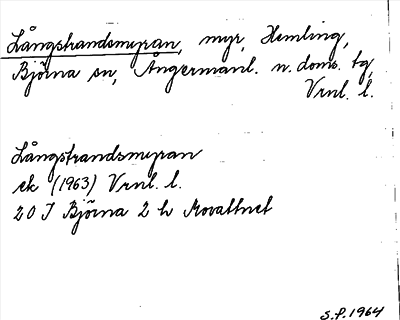 Långstrandsmyrån, myr, Hemling,
Björna sn, Ångermanl. n. doms. tg,
Vrnl. l.
Långstrandsmyran
ek (1963) Vrnl. l.
20 I Björna 2 h Movattnet
S.P. 1964